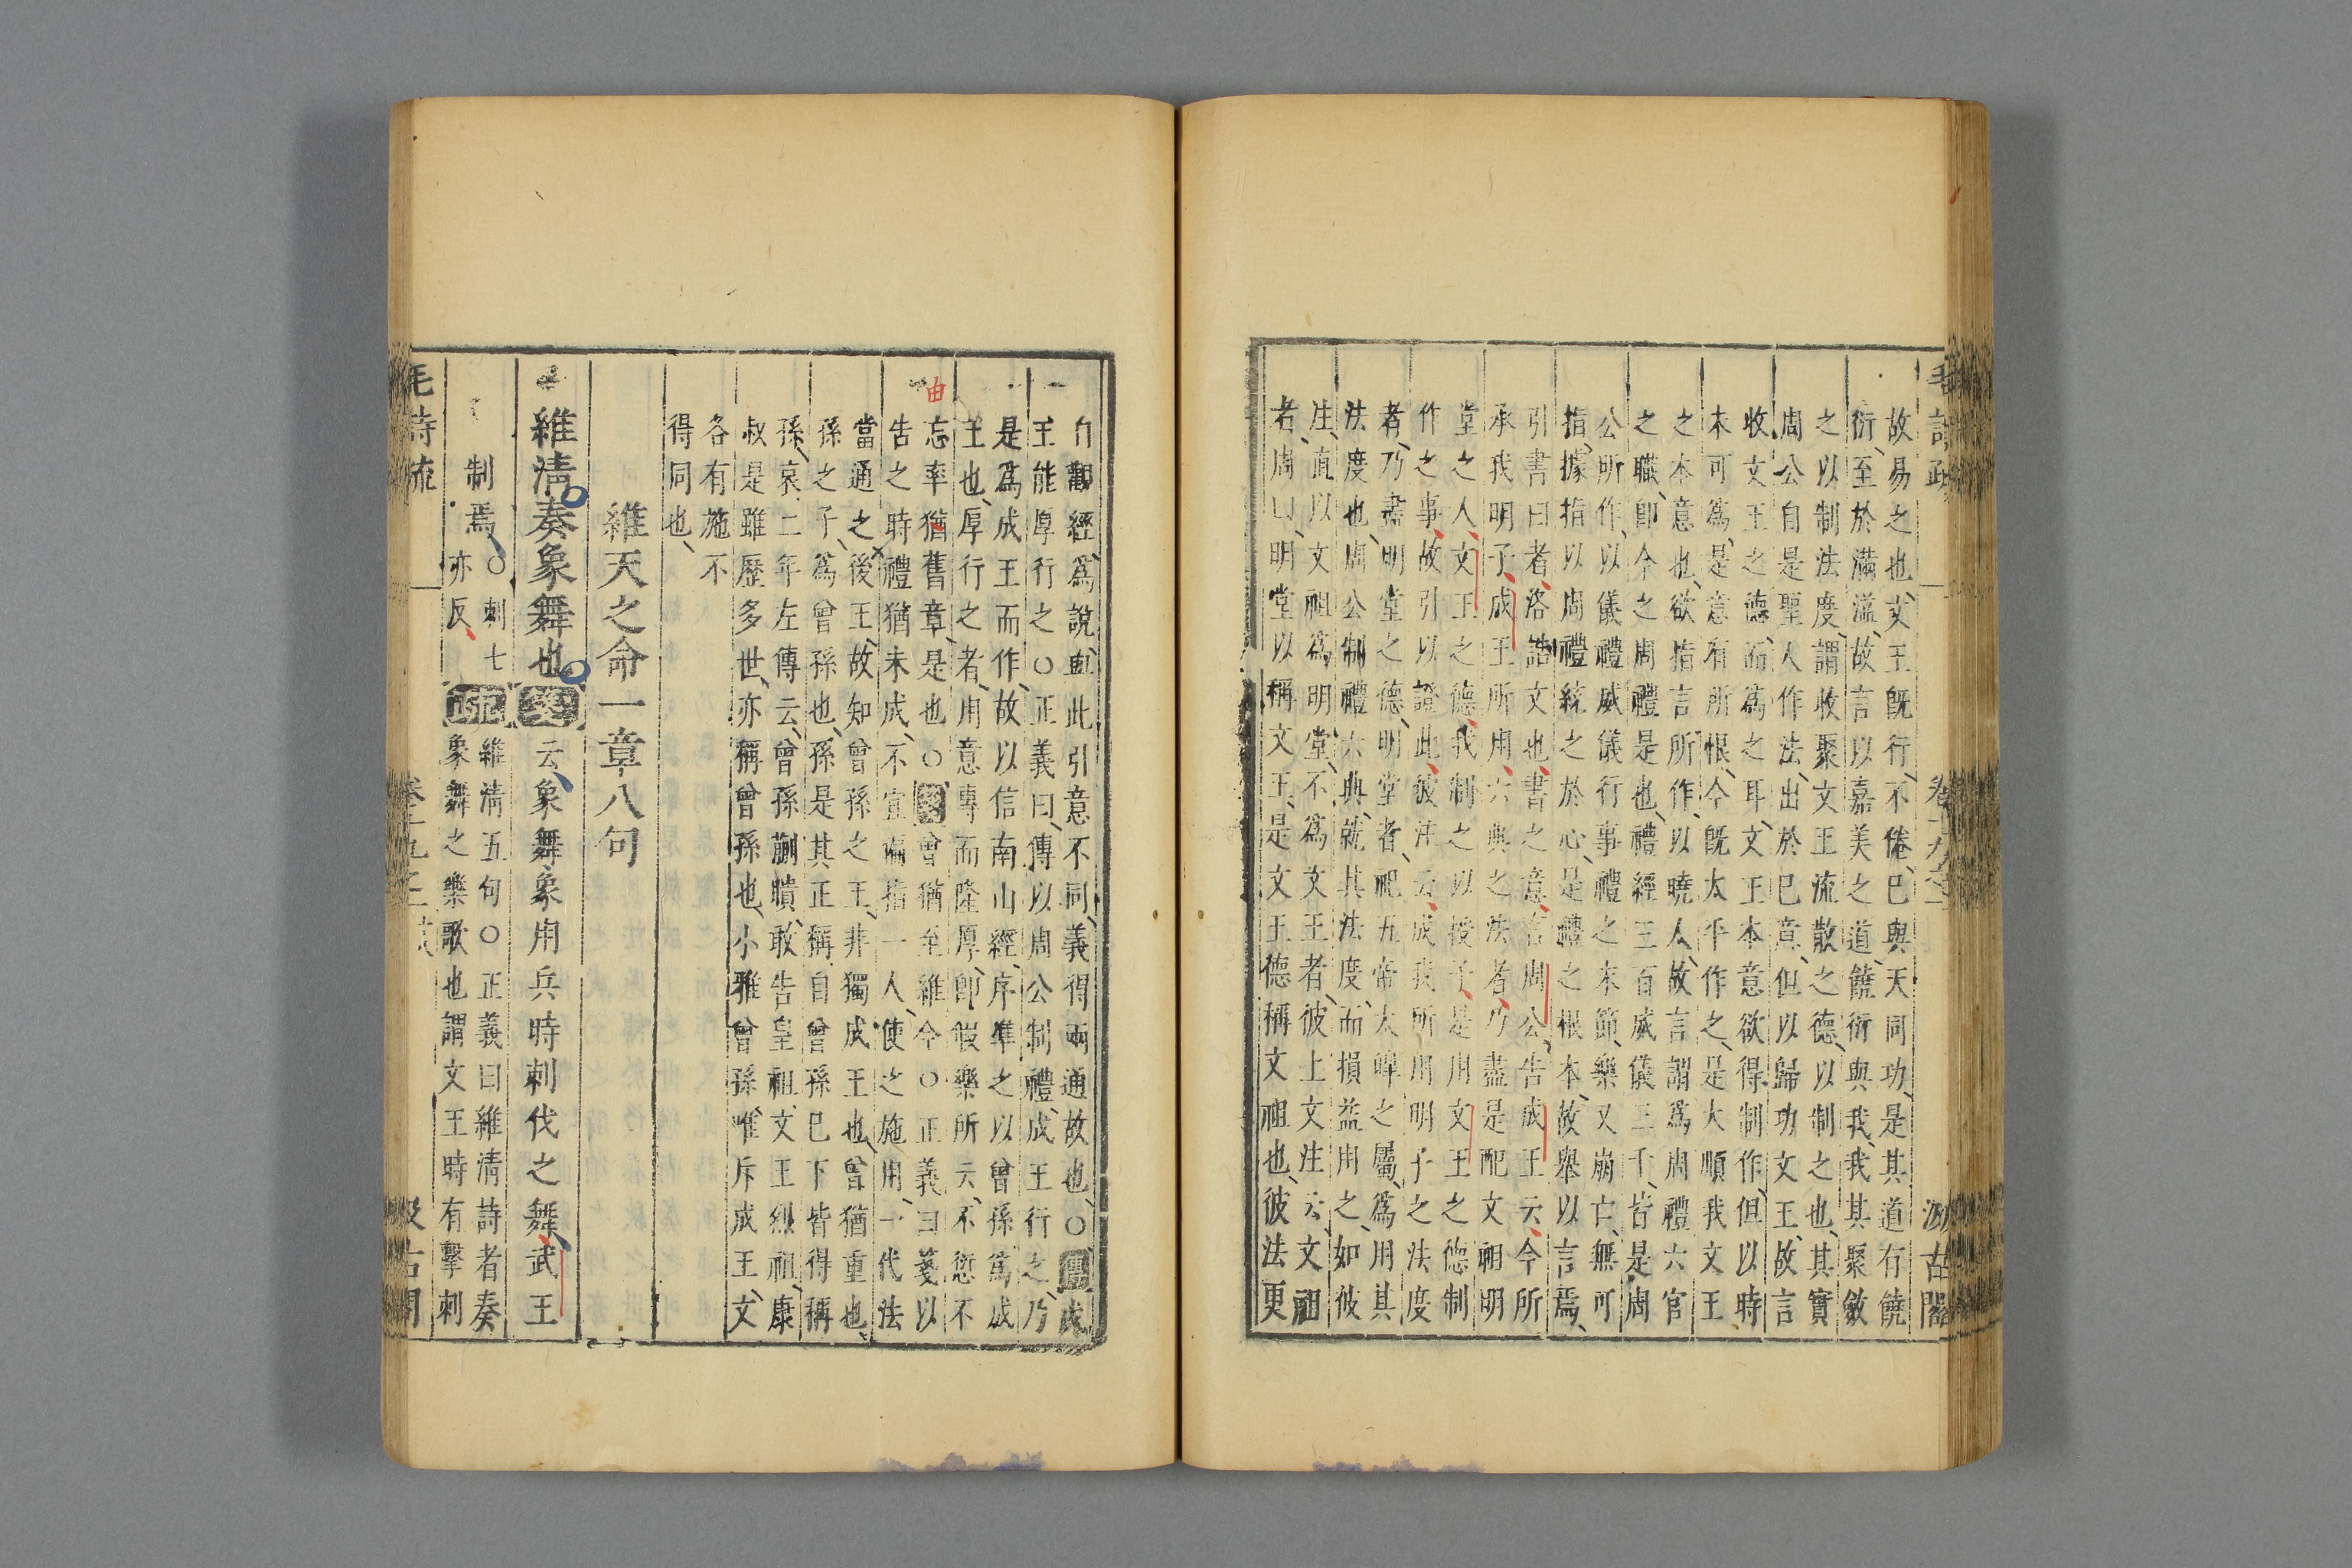 故易之也文王既行不倦巳與天同功是其道有饒
衍至於滿溢故言以嘉美之道饒衍與我我其聚斂
之以制法度謂收聚文王流散之德以制之也其實
周公自是聖人作法出於巳意但以歸功文王故言
收文王之德而爲之耳文王本意欲得制作但以時
未可爲是意有所恨今既太平作之是大順我文王
之本意也欲指言所作以曉人故言謂爲周禮六官
之職即今之周禮是也禮經三百威儀三千皆是周
公所作以儀禮威儀行事禮之末節樂又崩亡無可
指據指以周禮統之於心是禮之根本故舉以言焉
引書曰者洛誥文也書之意言周公告成王云今所
承我明子成王所用六典之法者乃盡是配文祖明
堂之人文王之德我制之以授子是用文王之德制
作之事故引以證此彼注云成我所用明子之法度
者乃盡明堂之德明堂者祀五帝太皥之屬爲用其
法度也周公制禮六典就其法度而損益用之如彼
注直以文祖爲明堂不爲文王者彼上文注云文祖
者周曰明堂以稱文王是文王德稱文祖也彼法更
自觀經爲說與此引意不同義得兩通故也○傳成
王能厚行之○正義曰傳以周公制禮成王行之乃
是爲成王而作故以信南山經序準之以曾孫爲成
王也厚行之者用意專而隆厚即假樂所云不愆不
忘率由舊章是也○箋曾猶至維今○正義曰箋以
告之時禮猶未成不宜偏指一人使之施用一代法
當通之後王故知曾孫之王非獨成王也曾猶重也
孫之子爲曾孫也孫是其正稱自曾孫巳下皆得稱
孫哀二年左傳云曾孫蒯聵敢告皇祖文王烈祖康
叔是雖歷多世亦稱曾孫也小雅曾孫唯斥成王文
各有施不
得同也
維天之命一章八句
維清奏象舞也箋云象舞象用兵時刺伐之舞武王
制焉○刺七
亦反
疏維清五句○正義曰維清詩者奏
象舞之樂歌也謂文王時有擊刺
毛詩疏
汲古閣